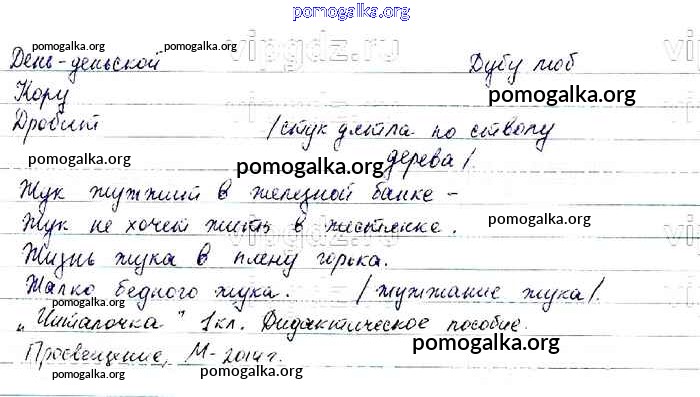 pomogalka.org
pomogalka.org pomogalka.org vipgdz.ru vipgdz.ru
День-деньской Дубу люб
Кору pomogalka.org
Дробит /стук дятла по стволу
pomogalka.org pomogalka.org дерева/.
Жук жужжит в железной банке -
Жук не хочет жить в жестянке. pomogalka.org
Жизнь жука в плену горька.
Жалко бедного жука. /жужжание жука/.
pomogalka.org pomogalka.org
„Читалочка" 1кл. Дидактическое пособие.
Просвещение, М-2014г. pomogalka.org
pomogalka.org pomogalka.org